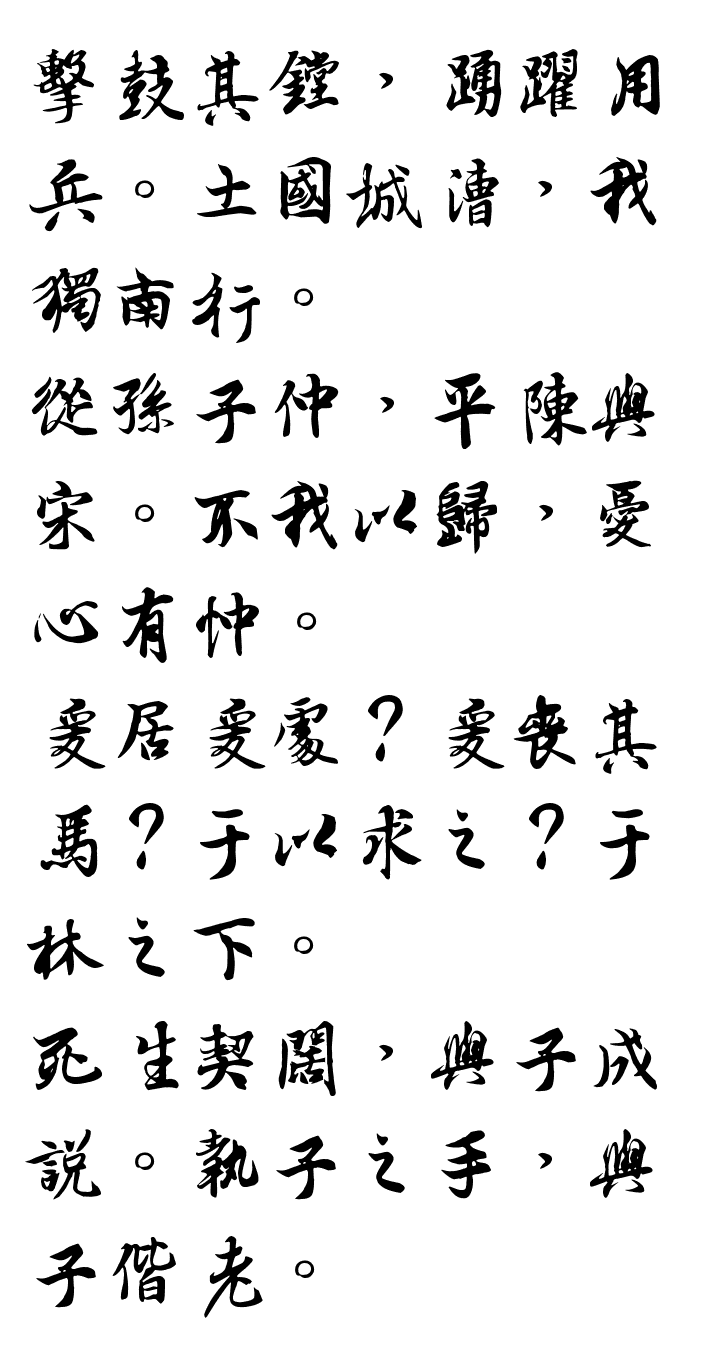 擊鼓其鏜，踴躍用
兵。土國城漕，我
獨南行。
從孫子仲，平陳與
宋。不我以歸，憂
心有忡。
爰居爰處？爰喪其
馬？于以求之？于
林之下。
死生契闊，與子成
説。執子之手，與
子偕老。